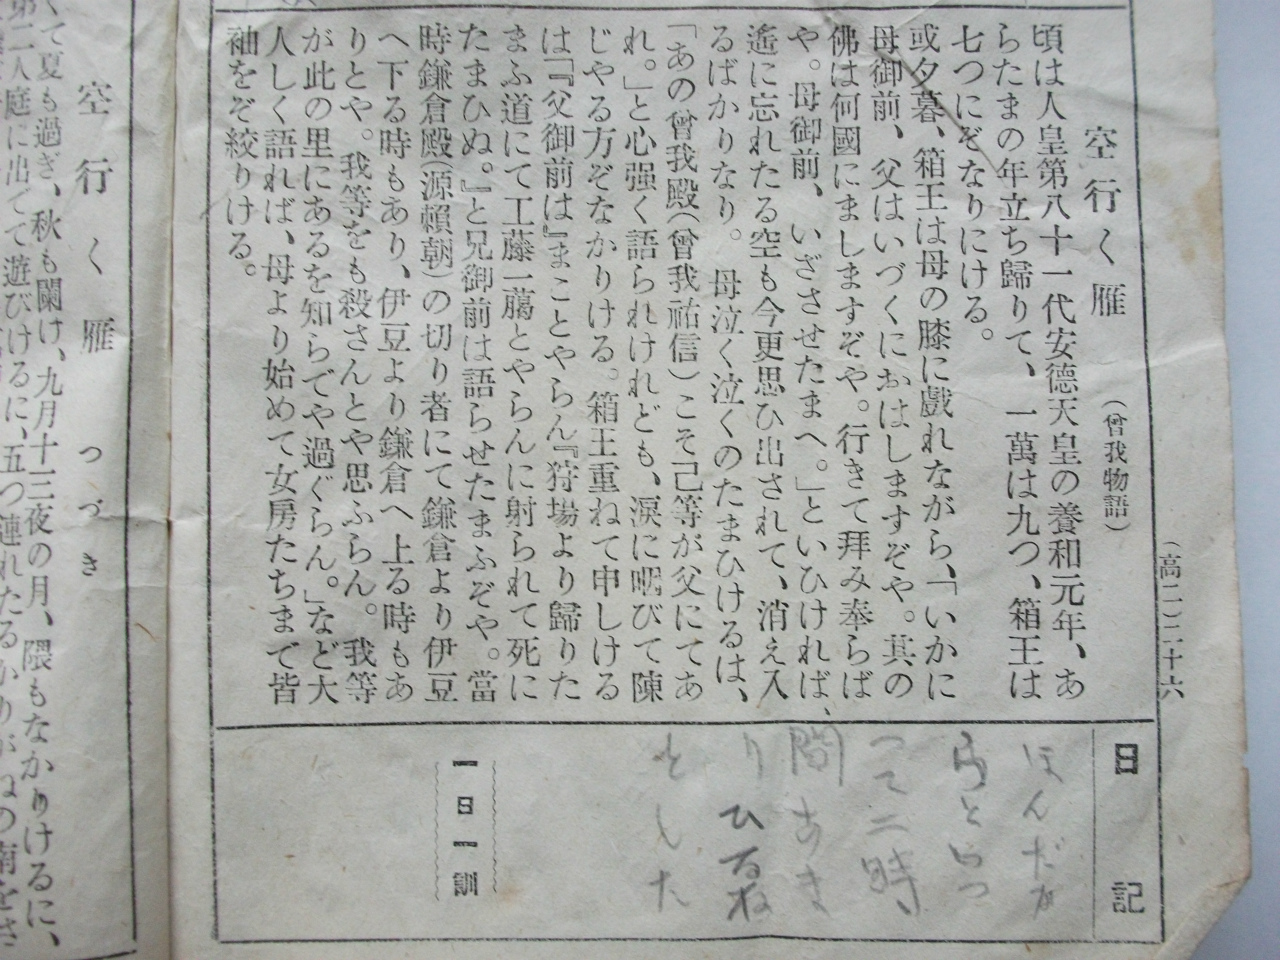 空行く雁
（曾我物語）
（高二）二十六
頃は人皇第八十一代安德天皇の養和元年、あ
らたまの年立ち歸りて、一萬は九つ、箱王は
七つにぞなりにける。
或夕暮、箱王は母の膝に戲れながら、「いかに
母御前、父はいづくにおはしますぞや。其の
佛は何國にましますぞや。行きて拜み奉らば
や。母御前、いざさせたまへ。」といひければ、
遙に忘れたる空も今更思ひ出されて、消え入
るばかりなり。母泣く泣くのたまひけるは、
「あの曾我殿（曾我祐信）こそ己等が父にてあ
れ。」と心强く語られけれども、淚に咽びて陳
じやる方ぞなかりける。箱王重ねて申しける
は「『父御前は』まことやらん『狩場より歸りた
まふ道にて工藤一﨟とやらんに射られて死に
たまひぬ。』と兄御前は語らせたまふぞや。當
時鎌倉殿（源賴朝）の切り者にて鎌倉より伊豆
へ下る時もあり、伊豆より鎌倉へ上る時もあ
りとや。我等をも殺さんとや思ふらん。我等
が此の里にあるを知らでや過ぐらん。」など大
人しく語れば、母より始めて女房たちまで皆
袖をぞ絞りける。
日記
ほんだが
って二時
間あま
りひるね
をした
一日一訓
空行く雁つづき
くて夏も過ぎ、秋も闌け、九月十三夜の月、隈もなかりけるに、
第二人庭に出でて遊びけるに、五つ連れたるかりがねの南をさ